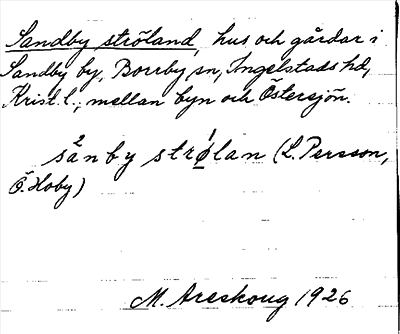 Sandby ströland, hus och gårdar i
Sandby by, Borrby sn, Ingelstads hd,
Krist. l., mellan byn och Östersjön.
sanby strølan (L. Persson,
Ö. Hoby)
M. Areskoug 1926